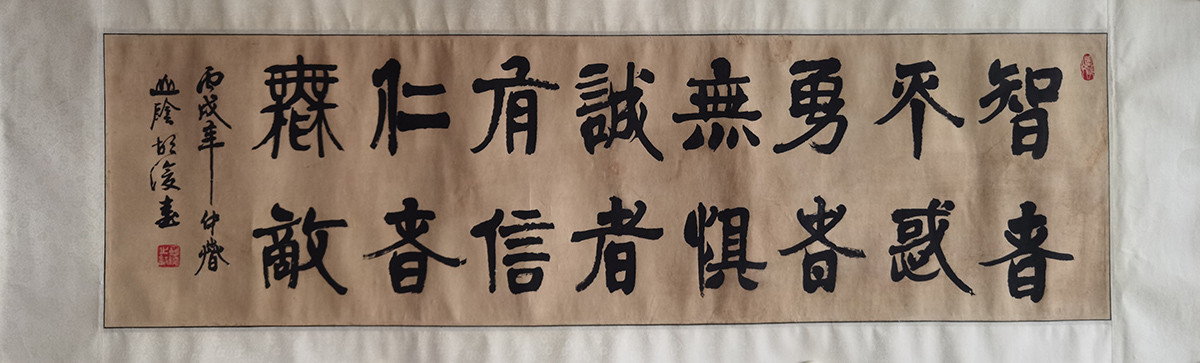 智者
不惑
勇者
無懼
誠者
有信
仁者
無敵
丙戌年仲春
山陰胡濬書